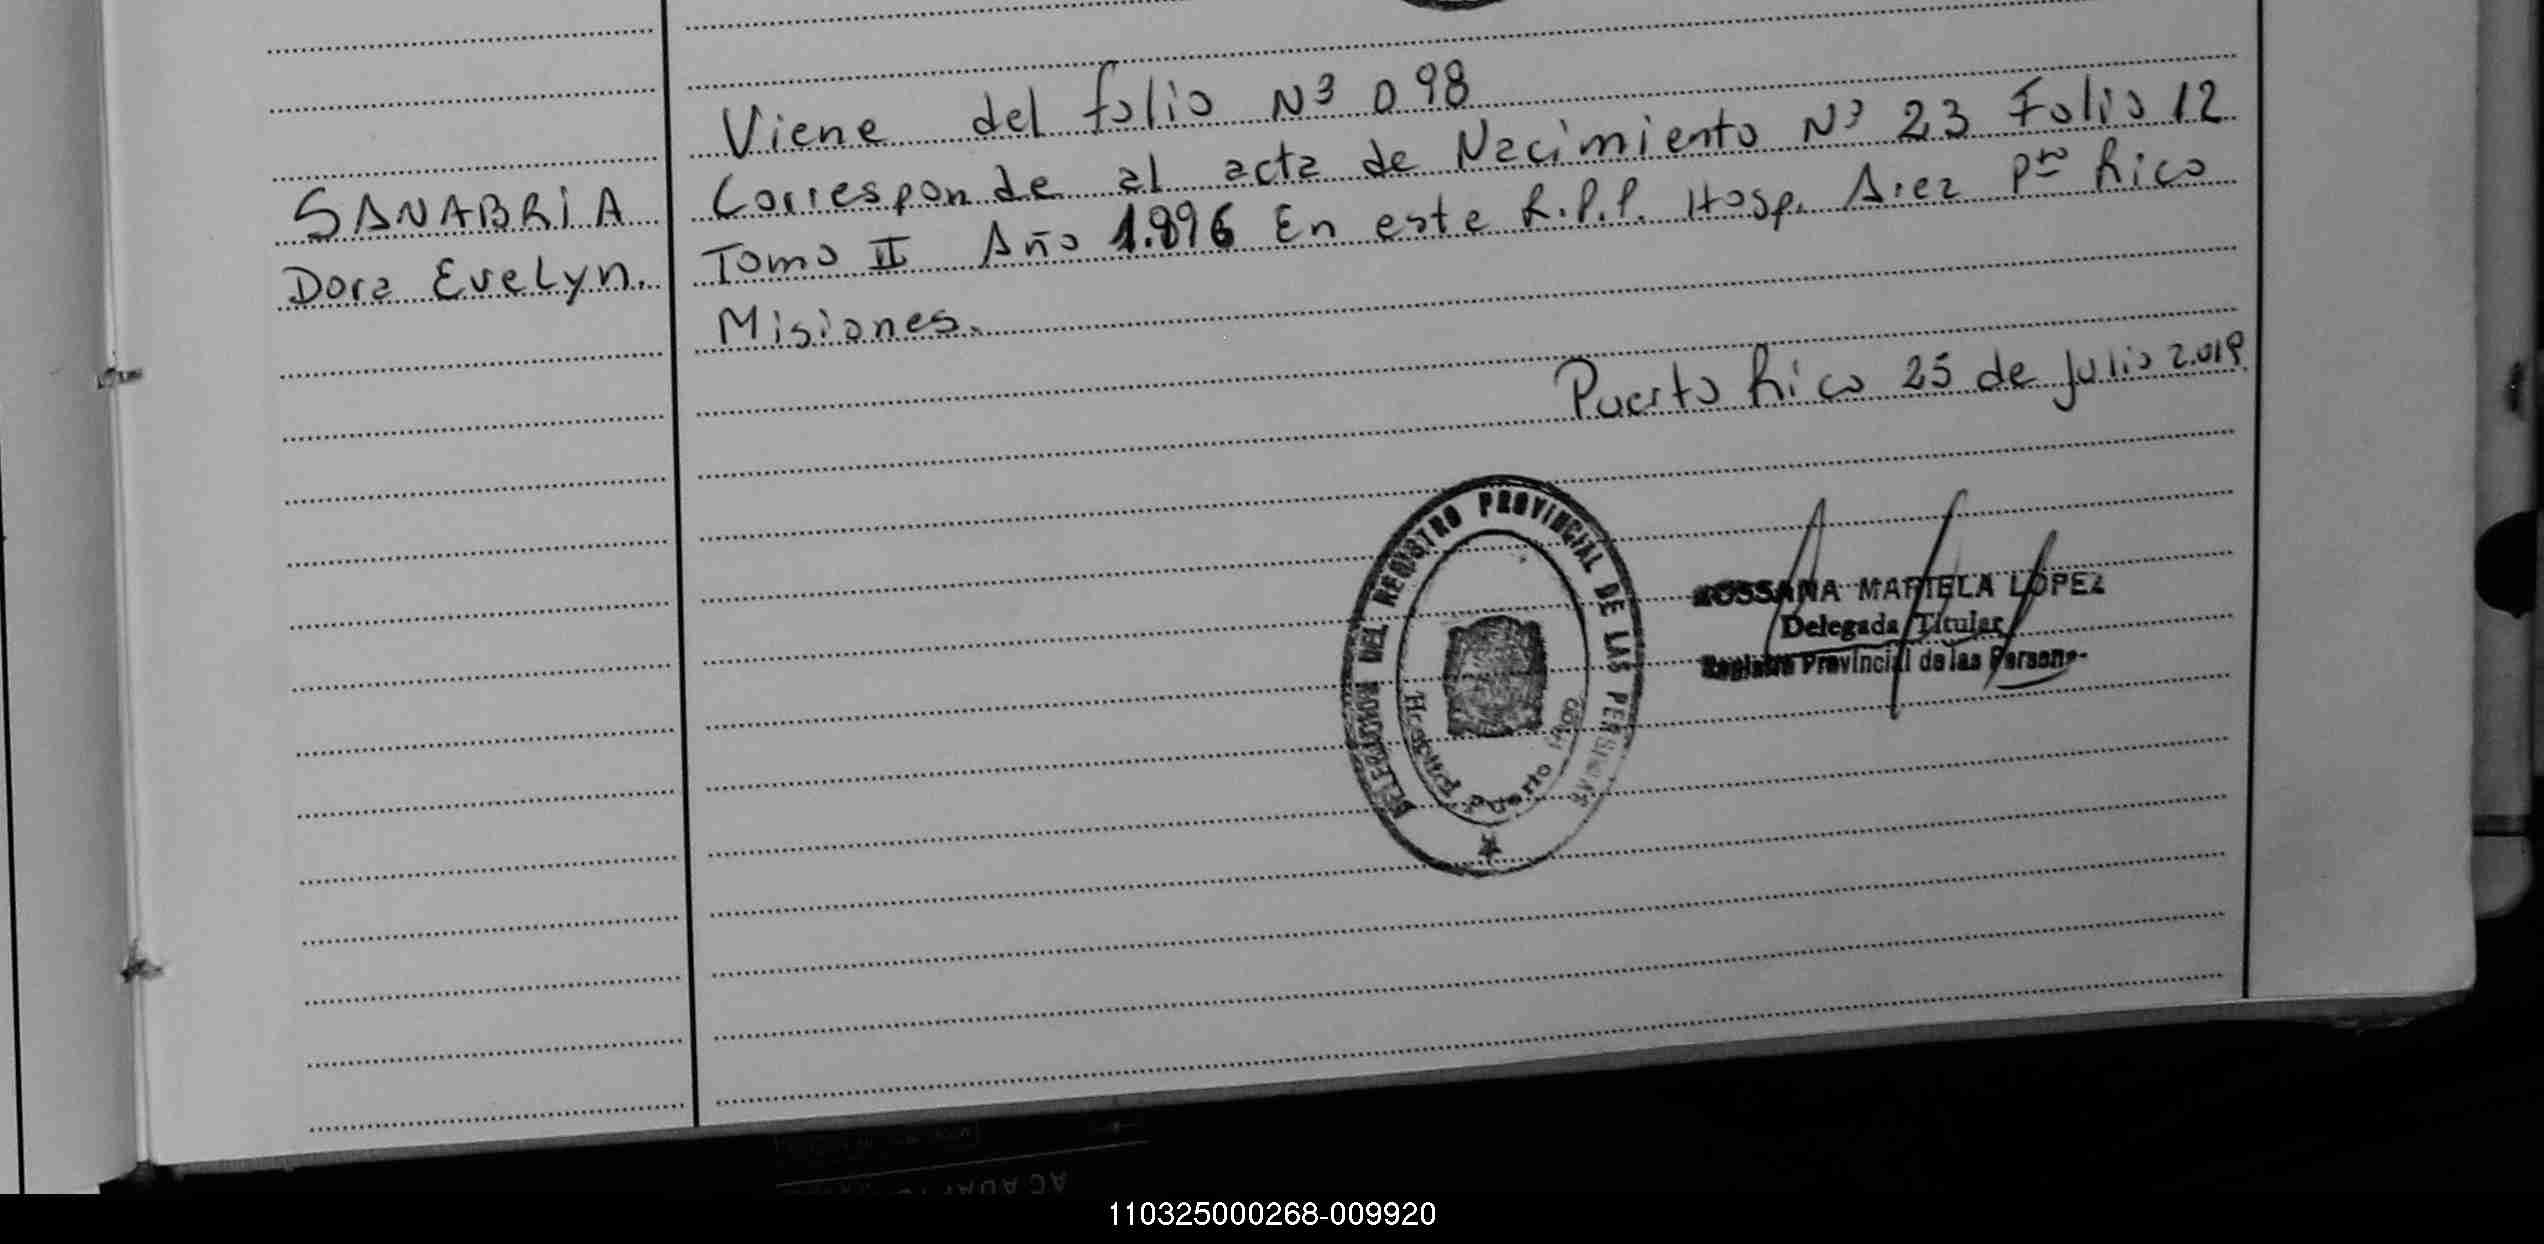 Viene del folio Nº 098
Corresponde al acta de Nacimiento Nº 23 Folio 12
SANABRIA
Tomo II Año 1.996 En este R.P.P. Hosp. Area Pto Rico
Dora Evelyn.
Misiones.
Puerto Rico 25 de Julio 2.019.
DELEGACION DEL REGISTRO PROVINCIAL DE LAS PERSONAS
Hospital Puerto Rico
ROSSANA MARIELA LOPEZ
Delegada Titular
Registro Provincial de las Persona-
110325000268-009920